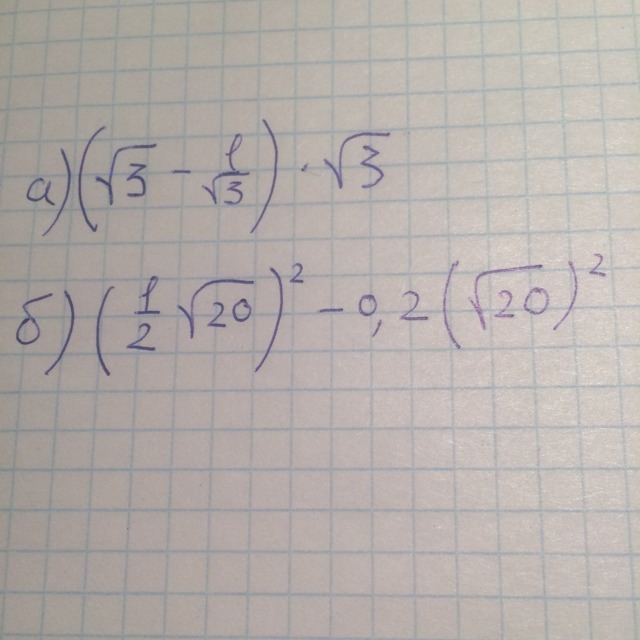 а) (√3 - 1/√3) · √3
б) (1/2 √20)² - 0,2 (√20)²